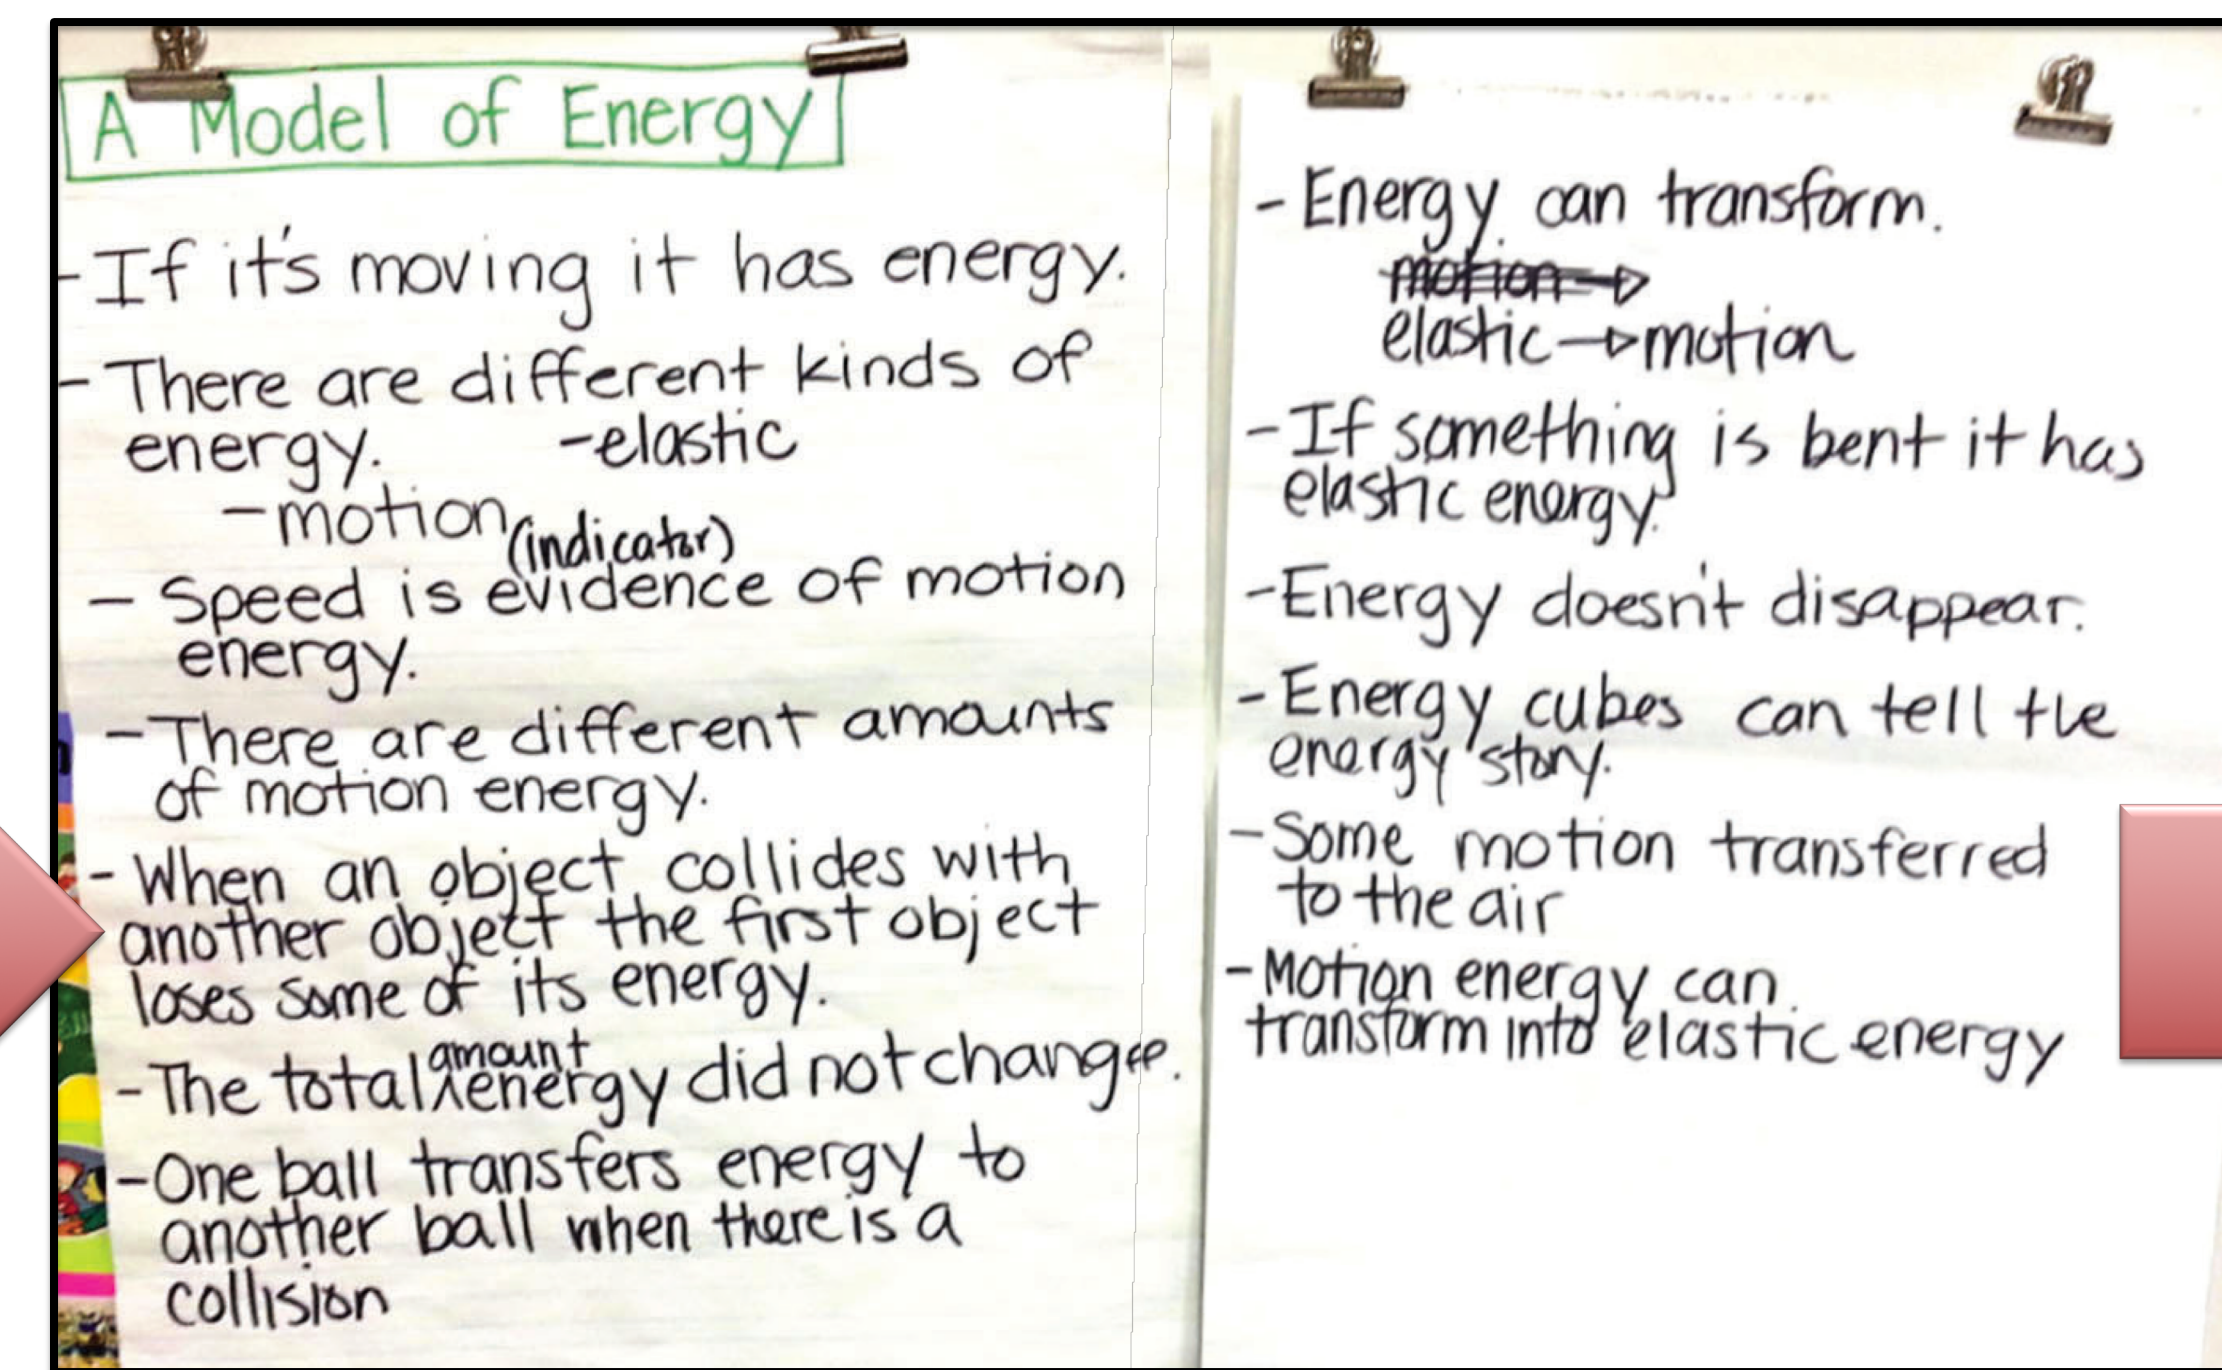 A Model of Energy
- If it's moving it has energy.
- There are different kinds of
energy. - elastic
- motion
(indicator)
- Speed is evidence of motion
energy.
- There are different amounts
of motion energy.
- When an object collides with
another object the first object
loses some of its energy.
amount
- The total ^ energy did not change.
- One ball transfers energy to
another ball when there is a
collision
- Energy can transform.
motion →
elastic → motion
- If something is bent it has
elastic energy.
- Energy doesn't disappear.
- Energy cubes can tell the
energy story.
- Some motion transferred
to the air
- Motion energy can
transform into elastic energy